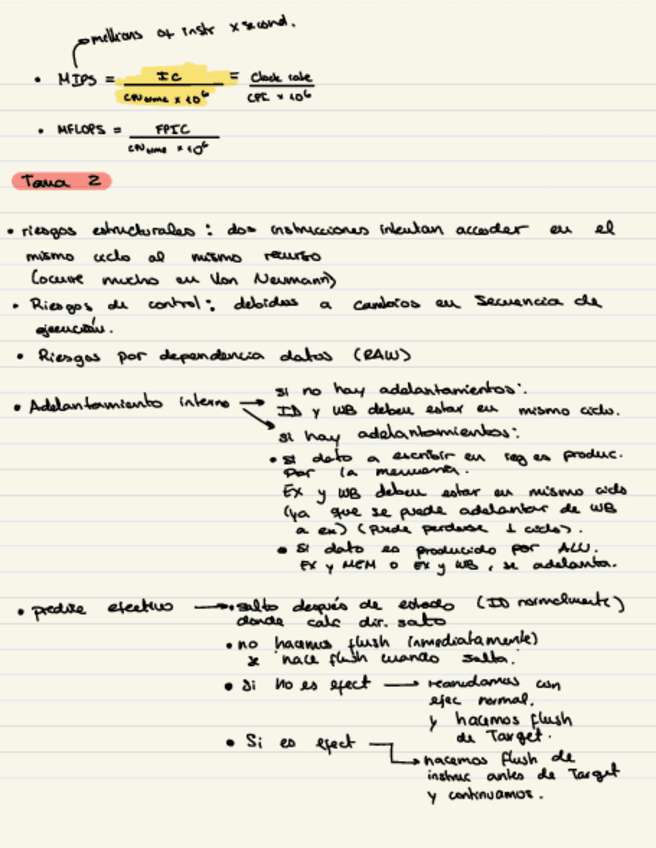 millions of instr x second.
• MIPS = IC / CPU time × 10^6 = Clock rate / CPI × 10^6
• MFLOPS = FPIC / CPU time × 10^6
Tema 2
• riesgos estructurales : dos instrucciones intentan acceder en el
mismo ciclo al mismo recurso
(ocurre mucho en Von Neumann)
• Riesgos de control : debidos a cambios en secuencia de
ejecución.
• Riesgos por dependencia datos (RAW)
• Adelantamiento interno → si no hay adelantamientos :
ID y WB deben estar en mismo ciclo.
si hay adelantamientos :
• si dato a escribir en reg es produc.
por la memoria.
EX y WB deben estar en mismo ciclo
(ya que se puede adelantar de WB
a ex) (puede perderse 1 ciclo).
• si dato es producido por ALU.
EX y MEM o EX y WB, se adelanta.
• predice efectivo → • salto después de estado (ID normalmente)
donde calc dir. salto
• no hacemos flush (inmediatamente)
se hace flush cuando salta.
• Si no es efect → reanudamos con
ejec normal.
y hacemos flush
de Target.
• Si es efect → hacemos flush de
instruc antes de Target
y continuamos.